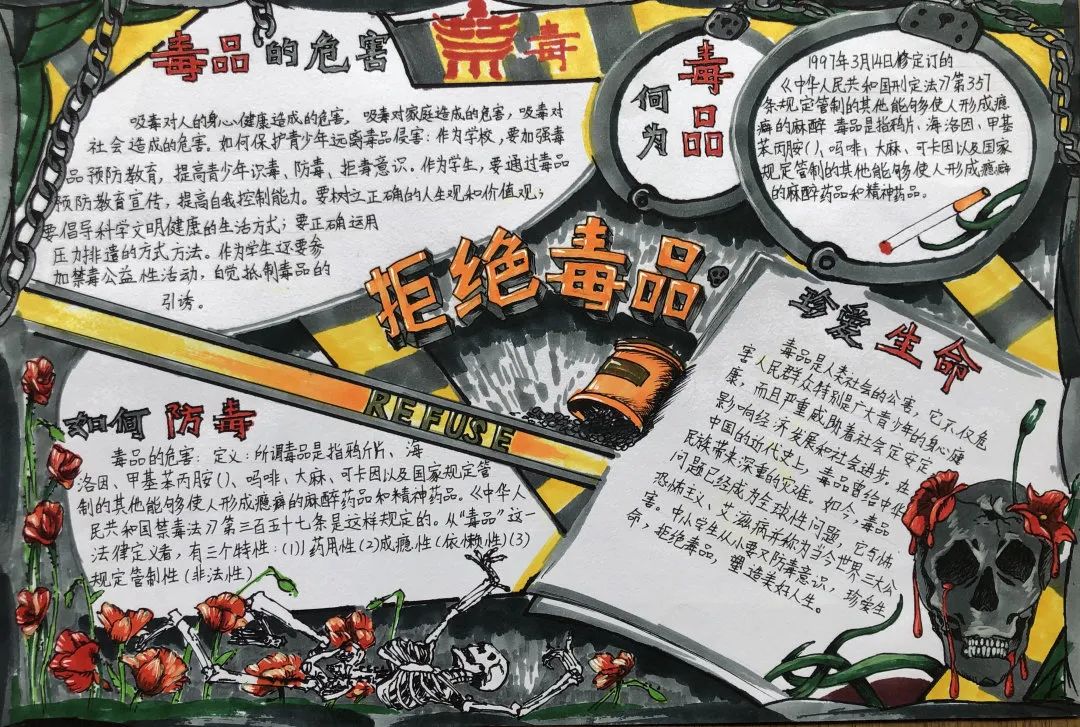 毒品的危害
吸毒对人的身心健康造成的危害。吸毒对家庭造成的危害，吸毒对
社会造成的危害。如何保护青少年远离毒品侵害：作为学校，要加强毒
品预防教育，提高青少年识毒、防毒、拒毒意识。作为学生，要通过毒品
预防教育宣传，提高自我控制能力。要树立正确的人生观和价值观；
要倡导科学文明健康的生活方式；要正确运用
压力排遣的方式方法。作为学生还要参
加禁毒公益性活动，自觉抵制毒品的
引诱。
禁毒
何为
毒品
1997年3月14日修定订的
《中华人民共和国刑定法》第357
条规定管制的其他能够使人形成瘾
癖的麻醉 毒品是指鸦片、海洛因、甲基
苯丙胺()、吗啡、大麻、可卡因以及国家
规定管制的其他能够使人形成瘾癖
的麻醉药品和精神药品。
拒绝毒品
REFUSE
如何防毒
毒品的危害：定义：所谓毒品是指鸦片、海
洛因、甲基苯丙胺()、吗啡、大麻、可卡因以及国家规定管
制的其他能够使人形成瘾癖的麻醉药品和精神药品。《中华人
民共和国禁毒法》第三百五十七条是这样规定的。从“毒品”这一
法律定义者，有三个特性：(1)药用性(2)成瘾性(依懒性)(3)
规定管制性(非法性)
珍爱生命
毒品是人类社会的公害，它不仅危
害人民群众特别是广大青少年的身心健
康，而且严重威胁着社会正安定
影响经济发展和社会进步，在
中国的近代史上，毒品曾给中华
民族带来深重的灾难。如今，毒品
问题已经成为全球性问题，它与恐怖
恐怖主义、艾滋病并称为当今世界三大公
害。中小学生从小要又防毒意识，珍爱生
命，拒绝毒品，塑造美好人生。